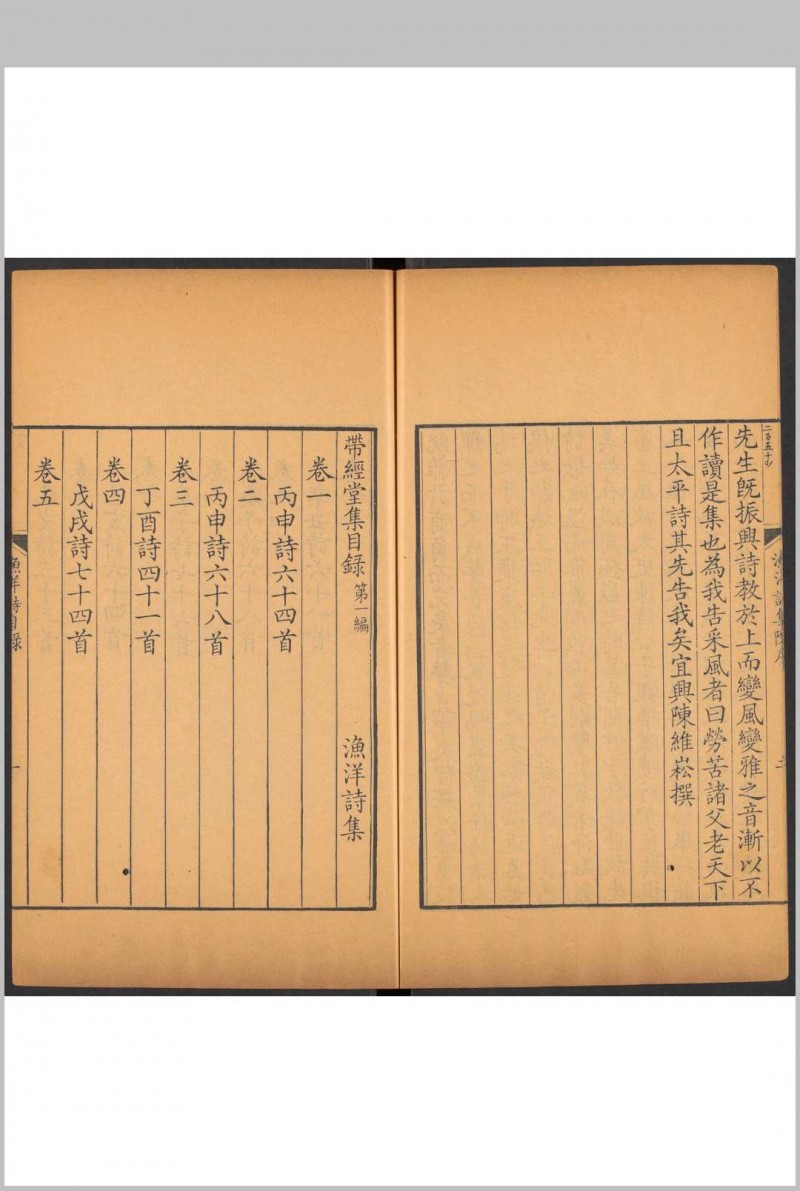 先生旣振興詩教於上而變風變雅之音漸以不
作讀是集也為我告采風者曰勞苦諸父老天下
且太平詩其先告我矣宜興陳維崧撰
帶經堂集目録 第一編 漁洋詩集
卷一
丙申詩六十四首
卷二
丙申詩六十八首
卷三
丁酉詩四十一首
卷四
戊戌詩七十四首
卷五
漁洋詩目録
一